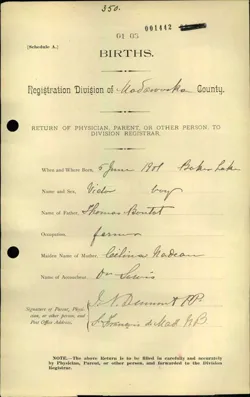 350.
001442
01 05
[Schedule A.]
BIRTHS.
Registration Division of Madawaska County.
RETURN OF PHYSICIAN, PARENT, OR OTHER PERSON, TO
DIVISION REGISTRAR.
When and Where Born, 5 June 1901 Baker Lake
Name and Sex, Victor boy
Name of Father, Thomas Boutot
Occupation, farmer
Maiden Name of Mother, Célina Nadeau
Name of Accoucheur, Dr Lewis
Signature of Parent, Physician, or other person, and Post Office Address,
J. N. Dumont PP
St François de Mad. N B
NOTE.—The above Return is to be filled in carefully and accurately
by Physician, Parent, or other person, and forwarded to the Division
Registrar.